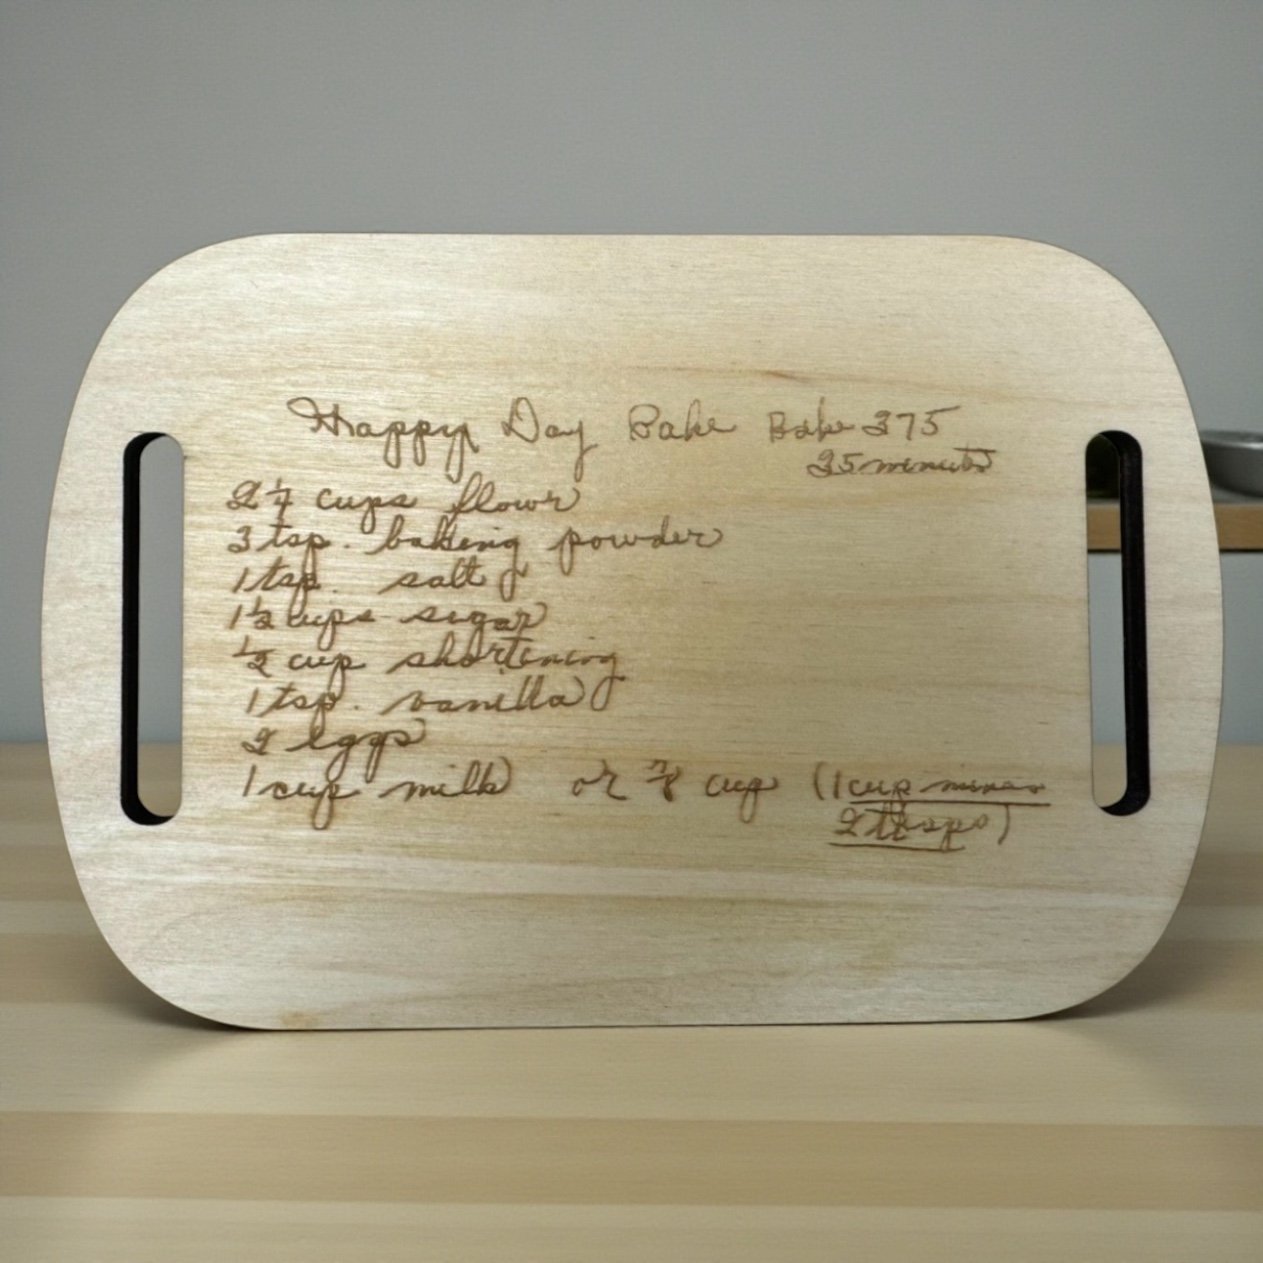 Happy Day Bake Bake 375
25 minutes
2 1/4 cups flour
3 tsp. baking powder
1 tsp. salt
1 1/2 cups sugar
1/2 cup shortening
1 tsp. vanilla
2 eggs
1 cup milk or 7/8 cup (1 cup minus
2 tbsps)